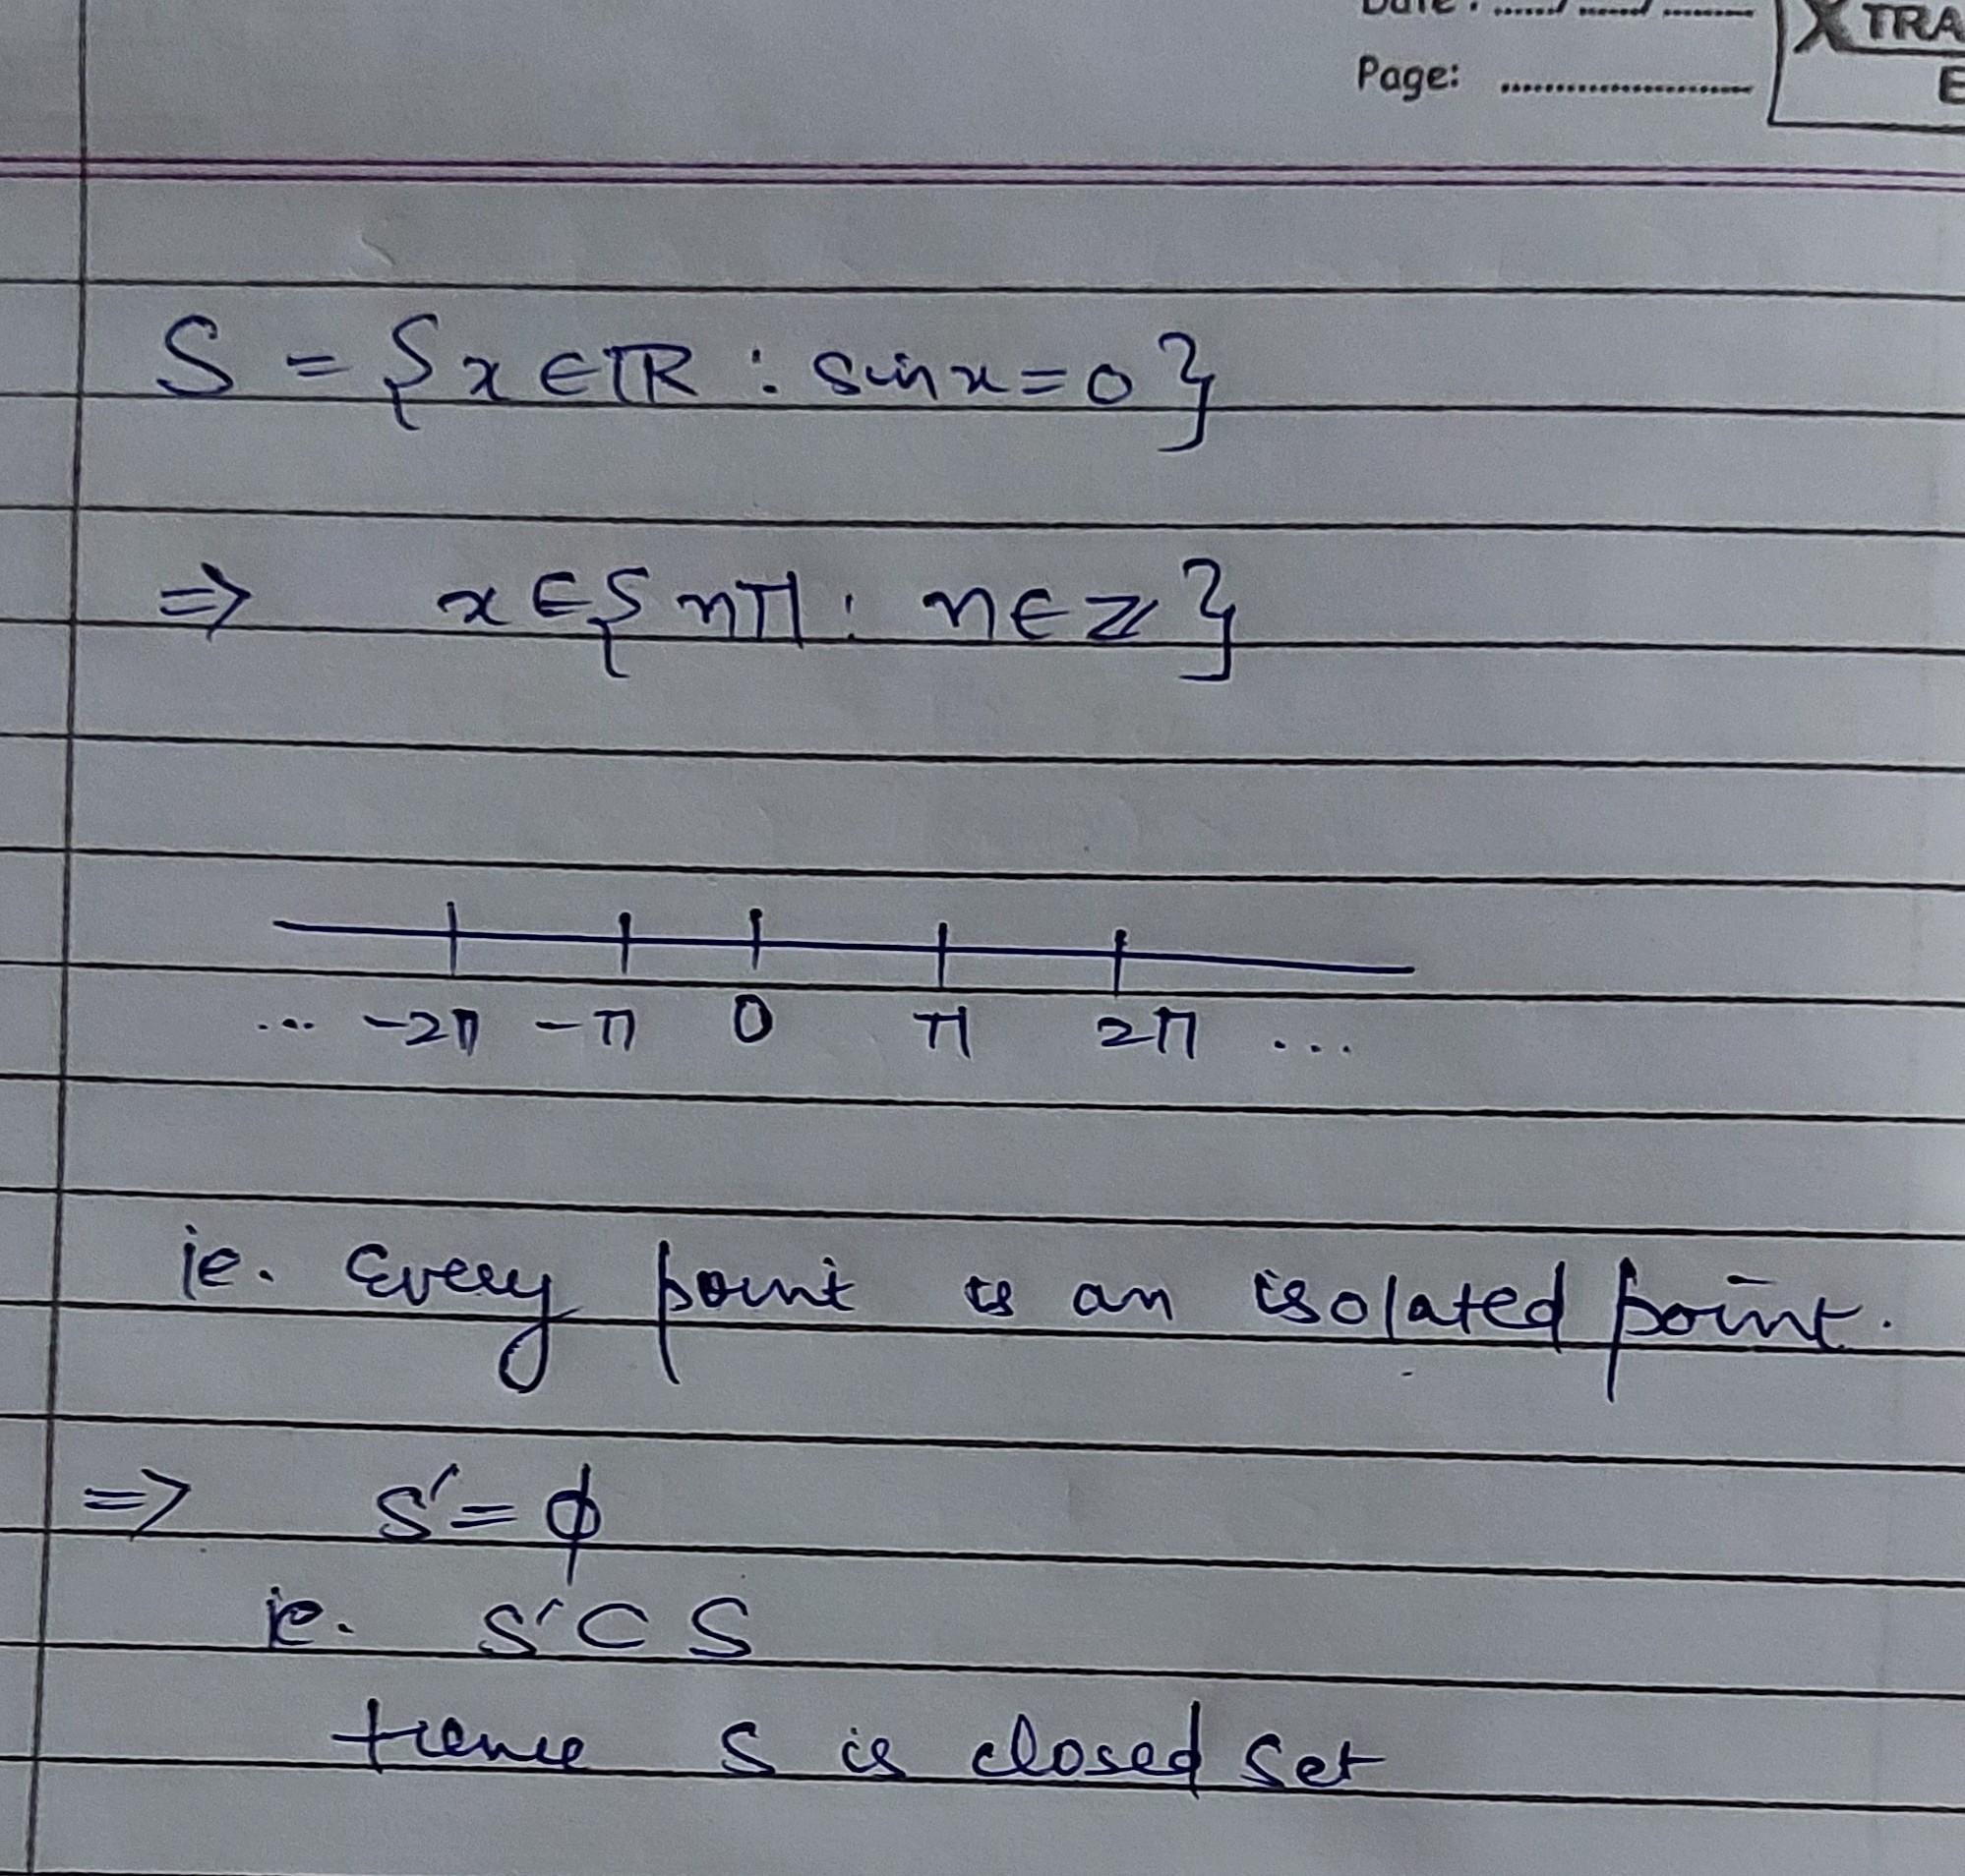 Date : ....../ ....../ .........
X TRA
Page: ........................
E
S = {x ∈ ℝ : sin x = 0}
⇒ x ∈ {nπ : n ∈ ℤ}
... -2π -π 0 π 2π ...
ie. Every point is an isolated point.
⇒ S' = ϕ
ie. S' ⊂ S
Hence S is closed set